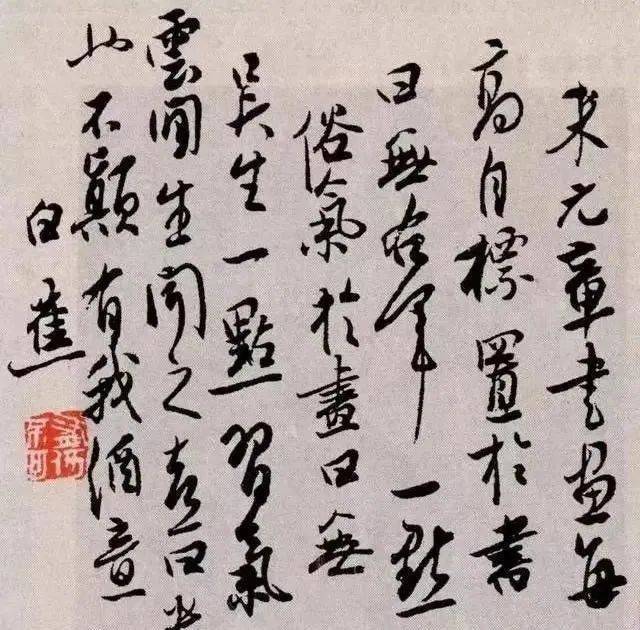 米元章書畫每
高自標置於書
曰無右軍一點
俗氣於畫曰無
吳生一點習氣
雲間生聞之喜曰
不顛有我酒意
白蕉